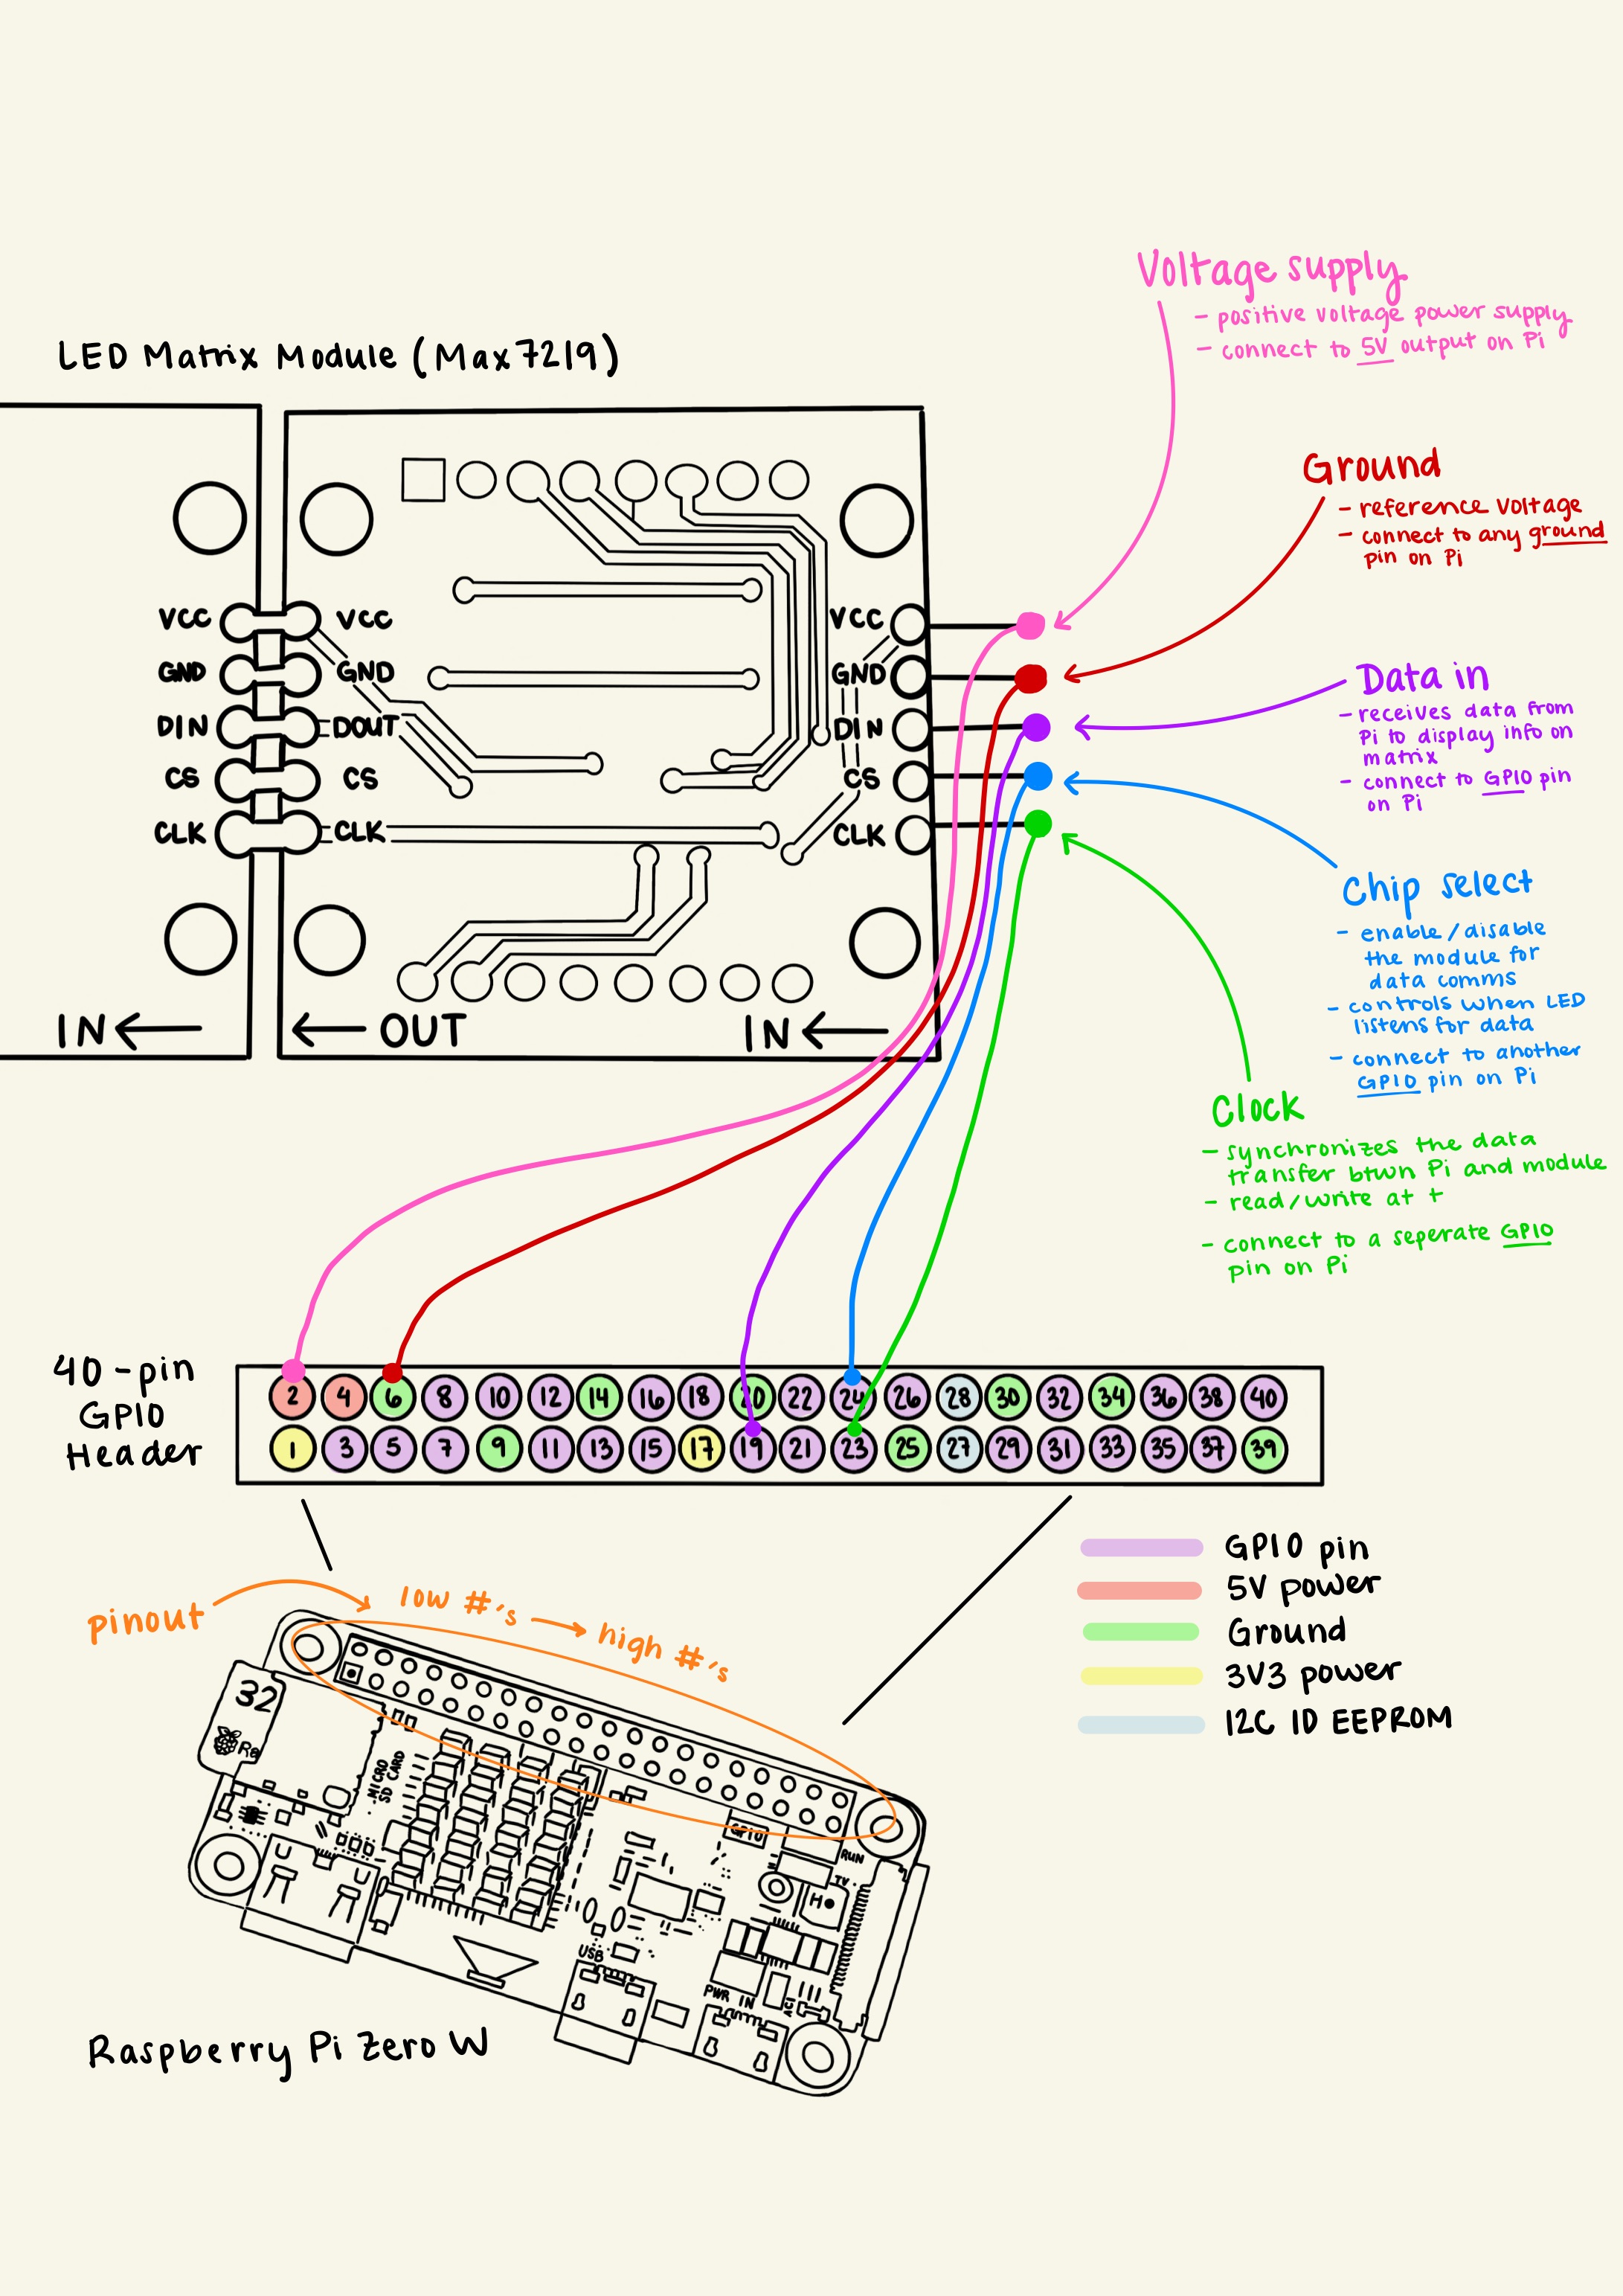 Voltage supply
- positive voltage power supply
- connect to 5V output on Pi
LED Matrix Module (Max7219)
Ground
- reference voltage
- connect to any ground
pin on Pi
Data in
- receives data from
Pi to display info on
matrix
- connect to GPIO pin
on Pi
Chip select
- enable/disable
the module for
data comms
- controls when LED
listens for data
- connect to another
GPIO pin on Pi
Clock
- synchronizes the data
transfer btwn Pi and module
- read/write at +
- connect to a seperate GPIO
pin on Pi
VCC VCC VCC
GND GND GND
DIN DOUT DIN
CS CS CS
CLK CLK CLK
IN OUT IN
40-pin
GPIO
Header
2 4 6 8 10 12 14 16 18 20 22 24 26 28 30 32 34 36 38 40
1 3 5 7 9 11 13 15 17 19 21 23 25 27 29 31 33 35 37 39
GPIO pin
5V power
Ground
3V3 power
I2C ID EEPROM
pinout
low #'s → high #'s
32
Ra
MICRO
SD CARD
GPIO
RUN
TV
H
USB
PWR IN
Raspberry Pi Zero W